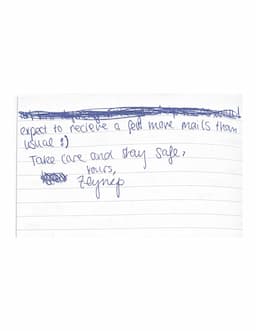 expect to recieve a few more mails than
usual :)
Take care and stay safe.
Yours,
Zeynep